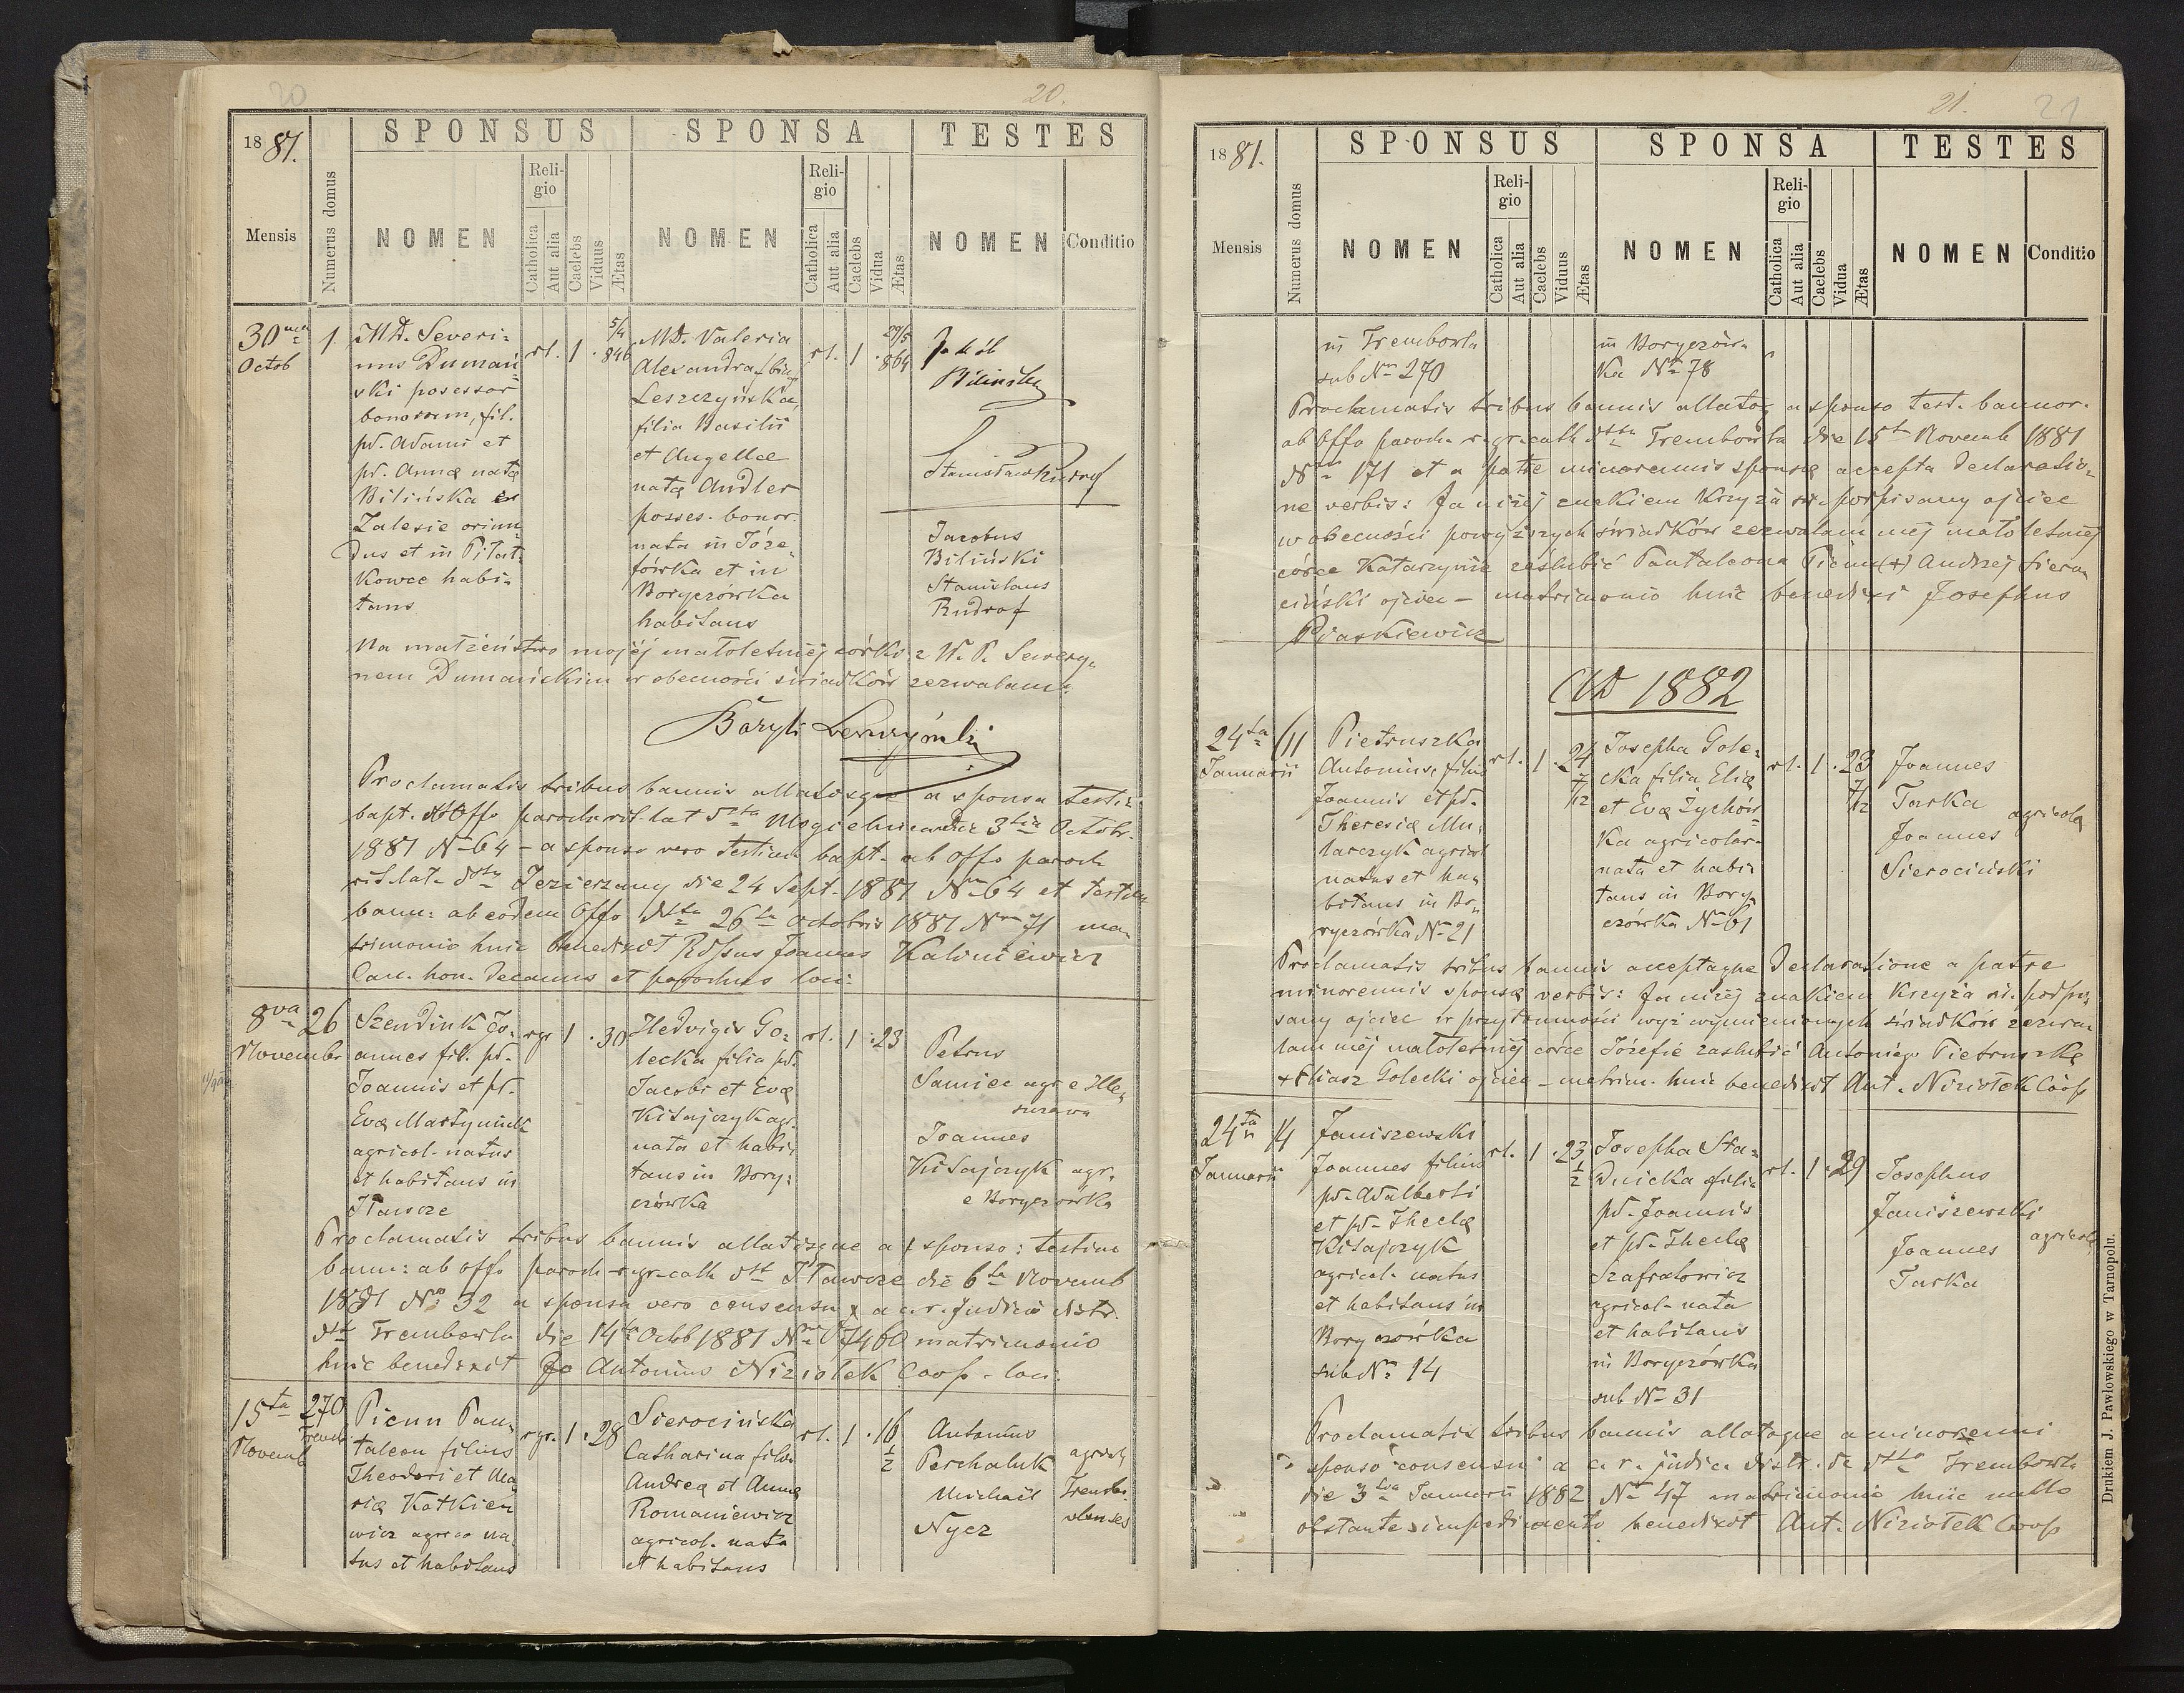 20
20.
1881.
SPONSUS
SPONSA
TESTES
Mensis
Numerus domus
NOMEN
Religio
Catholica
Aut alia
Caelebs
Viduus
Ætas
NOMEN
Religio
Catholica
Aut alia
Caelebs
Vidua
Ætas
NOMEN
Conditio
30
Octob
1.
MD. Severi-
nus Dumań-
ski posessor
bonorum, fil.
pd. Adami et
pd. Anna nata
Bilińska ex
Zalesie oriun-
dus et in Pilat-
kowce habi-
tans
rl. 1 .
5/4
846
MD. Valeria
Alexandra
Leszczyńska,
filia Basilii
et Angellae
nata Andler
posses. bonor.
nata in Józe-
fówka et in
Boryczówka
habitans
rl. 1 .
29/5
864
Jakób
Biliński
Stanisław Rudrof
Jacobus
Biliński
Stanislaus
Rudrof
Na małżeństwo mojéj małoletniéj córki z W. P. Sewery-
nem Dumańskim w obecności świadków zezwalam:
Bazyli Leszczyński
Proclamatis tribus bannis allatisque a sponsa testi-
bapt. ab Offo paroch rit. lat Mogielnica die 3 Octobr.
1881 N 64 - a sponso vero testim bapt. ab offo paroch
rit. lat. Jezierzany die 24 Sept. 1881 N 64 et testim
bann: ab eodem Offo 26 Octobris 1881 N 71 ma-
trimonio huic benedixit Joannes Kaliniewicz
Can. hon. Decanus et parochus loci:
8va
Novembr
26
Szendiuk Jo-
annes fil. pd.
Joannis et pd.
Eva Martyniuk
agricol. natus
et habitans in
Iławcze
rgr 1 . 30
Hedvigis Go-
lecka filia pd.
Jacobi et Eva
Kitajczyk agr.
nata et habi-
tans in Bory-
czówka
rl. 1 . 23
Petrus
Samiec agr e
Joannes
Kitajczyk agr.
e Boryczówka
Proclamatis tribus bannis allatisque a sponso: testim
bann: ab offo paroch r. gr. cath Iławcze die 6ta Novemb
1881 N 32 a sponsa vero consensu a c. r. Judicio distr.
Trembowla die 14ta Octob 1881 N 7460 matrimonio
huic benedixit Antonius Niziołek Coop. loci:
15ta
Novemb
270
Picun Pan-
taleon filius
Theodori et Ma-
ria Katkien-
wicz agrico na-
tus et habitans
rgr. 1 . 28
Sierocińska
Catharina filia
Andrea et Anna
Romaniewicz
agricol. nata
et habitans
rl. 1 . 16
1/2
Antonius
Perchaluk
Michael
Nycz
agricol
21.
21
1881.
SPONSUS
SPONSA
TESTES
Mensis
Numerus domus
NOMEN
Religio
Catholica
Aut alia
Caelebs
Viduus
Ætas
NOMEN
Religio
Catholica
Aut alia
Caelebs
Vidua
Ætas
NOMEN
Conditio
in Trembowla
sub N 270
in Boryczów-
ka N 78
Proclamatis tribus bannis allatoq a sponso test. bannor.
ab Offo paroch. r. gr. cath Trembowla die 15 Novemb 1881
N 171 et a patre minorennis sponsa accepta declaratio-
ne verbis: Ja niżéj znakiem krzyża ś. podpisany ojciec
w obecności powyższych świadków zezwalam méj małoletniéj
córce Katarzynie zaślubić Pantaleona Picun (+) Andrzej Siero-
ciński ojciec - matrimonio huic benedixi Josephus
Piaskiewicz
AD 1882
24ta
Januarii
61
Pietruszka
Antonius, filius
Joannis et pd.
Theresia Mu-
larczyk agricol
natus et ha-
bitans in Bo-
ryczówka N 21
rl. 1 . 24
7/12
Josepha Gole-
cka filia Elia
et Eva Żychow-
ka agricolar.
nata et habi-
tans in Bory-
czówka N 61
rl. 1 . 23
7/12
Joannes
Tarka
Joannes
Sierociński
agricola
Proclamatis tribus bannis acceptaque Declaratione a patre
minorennis sponsa verbis: Ja niżéj znakiem krzyża ś. podpi-
sany ojciec w przytomności wyż wymienionych świadków zezwa-
lam méj małoletniéj córce Józefie zaślubić Antoniego Pietruszkę
+ Eliasz Golecki ojciec - matrim. huic benedixit Ant. Niziołek Coop
24ta
Januarii
14
Janiszewski
Joannes filius
pd. Adalberti
et pd. Thecla
Kitajczyk
agricol. natus
et habitans in
Boryczówka
sub N 14
rl. 1 . 23
1/2
Josepha Sta-
dnicka filia
pd. Joannis
et pd. Thecla
Szafratowicz
agricol. nata
et habitans
in Boryczówka
sub N 31
rl. 1 . 29
Josephus
Janiszewski
Joannes
Tarka
agricola
Proclamatis tribus bannis allatoque a minorenni
sponso consensu a c. r. judice distr. Trembowla
die 3 Januarii 1882 N 47 matrimonio huic nullo
obstante impedimento benedixit Ant. Niziołek Coop
Drukiem J. Pawłowskiego w Tarnopolu.